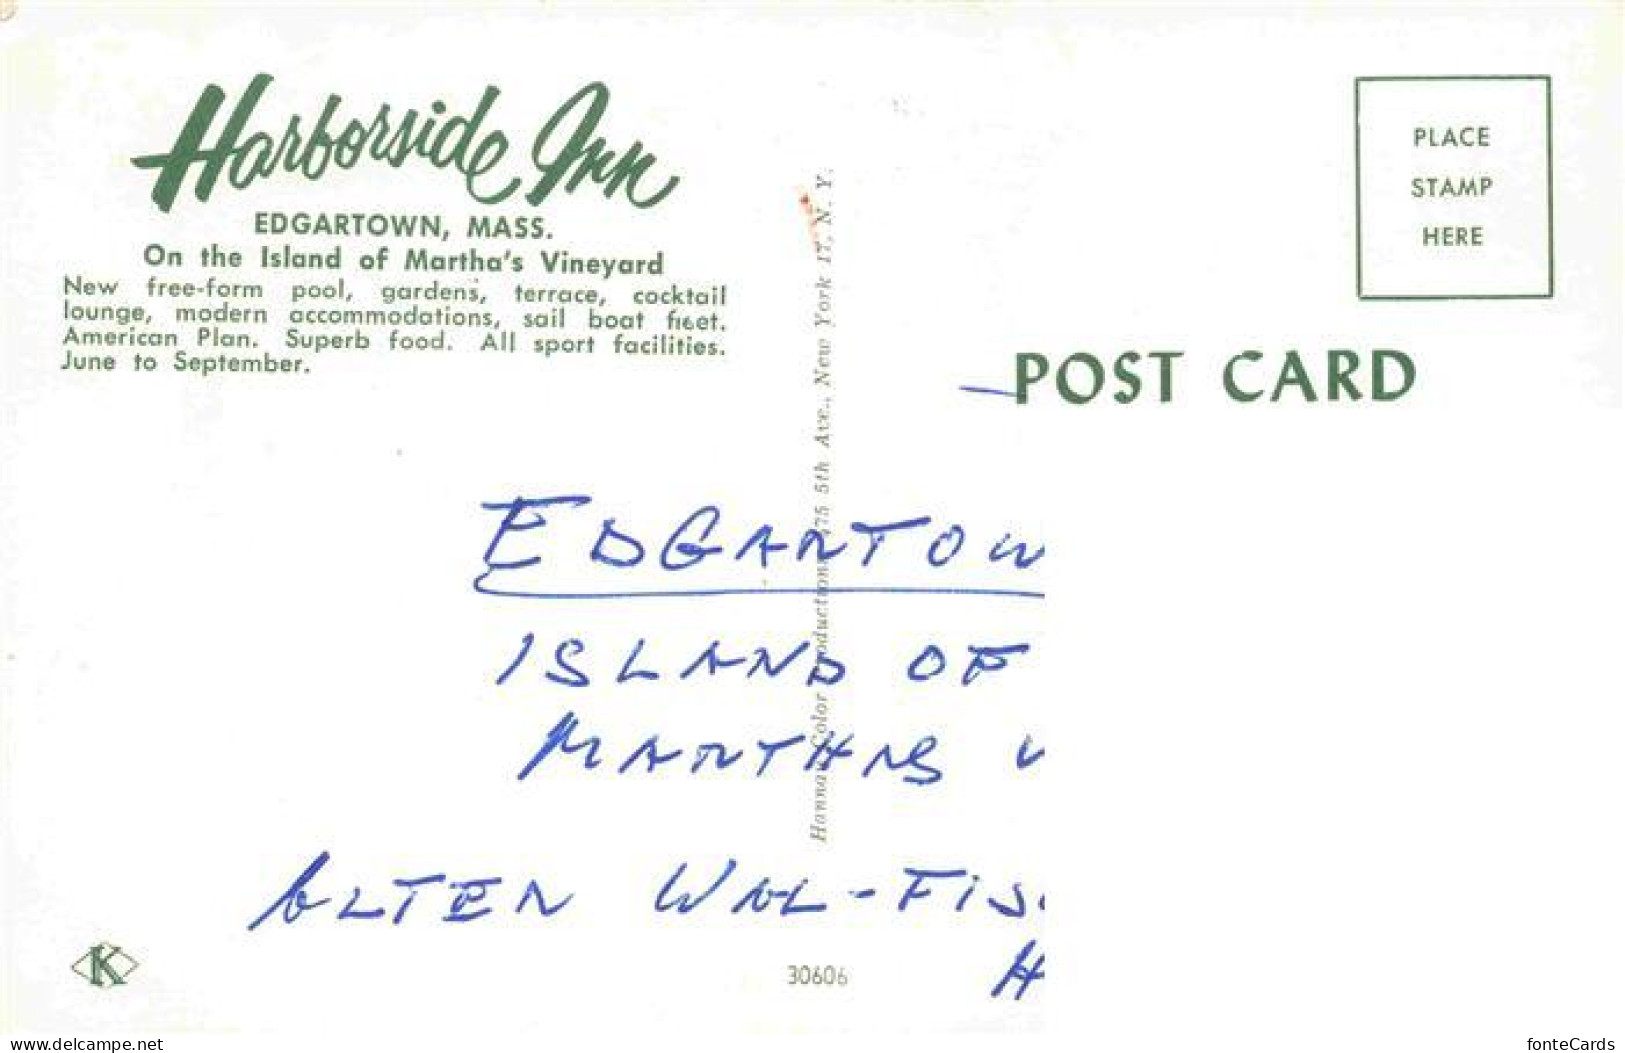 Harborside Inn
EDGARTOWN, MASS.
On the Island of Martha's Vineyard
New free-form pool, gardens, terrace, cocktail
lounge, modern accommodations, sail boat fleet.
American Plan. Superb food. All sport facilities.
June to September.
PLACE
STAMP
HERE
POST CARD
Hannau Color Productions 475 5th Ave., New York 17, N. Y.
EDGARTOW
ISLAND OF
MARTHAS V
ALTEN WAL-FIS
H
K
30606
www.delcampe.net
fonteCards